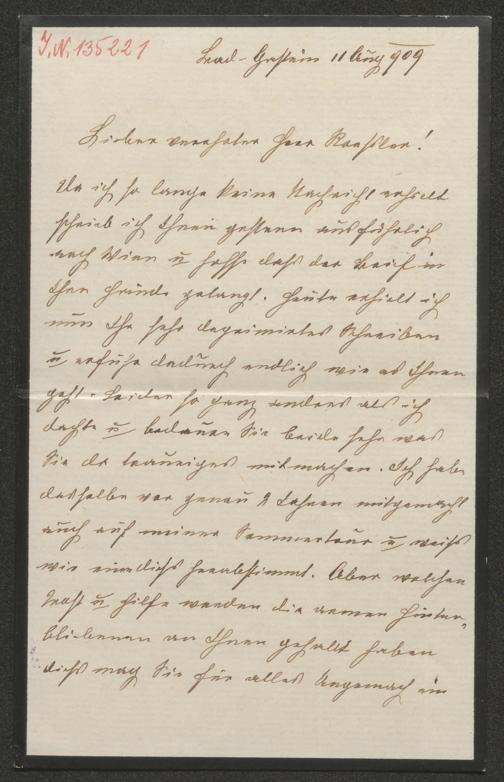 J.N. 135221
Bad-Gastein 11 Aug 909
Lieber verehrter Herr Roessler!
Da ich so lange keine Nachricht erhielt
schrieb ich Ihnen gestern ausführlich
nach Wien u hoffe daß der Brief in
Ihre Hände gelangt. Heute erhielt ich
nun Ihr sehr deprimirtes Schreiben
u erfuhr dadurch endlich wie es Ihnen
geht. Leider so ganz anders als ich
dachte u bedaure Sie beide sehr was
Sie da trauriges mitmachen. Ich habe
dasselbe vor genau 2 Jahren mitgemacht
auch auf meiner Sommertour u weiß
wie einen dieß herabstimmt. Aber welchen
Trost u Hilfe werden die armen Hinter-
bliebenen an Ihnen gehabt haben
dieß mag Sie für alles Ungemach ein